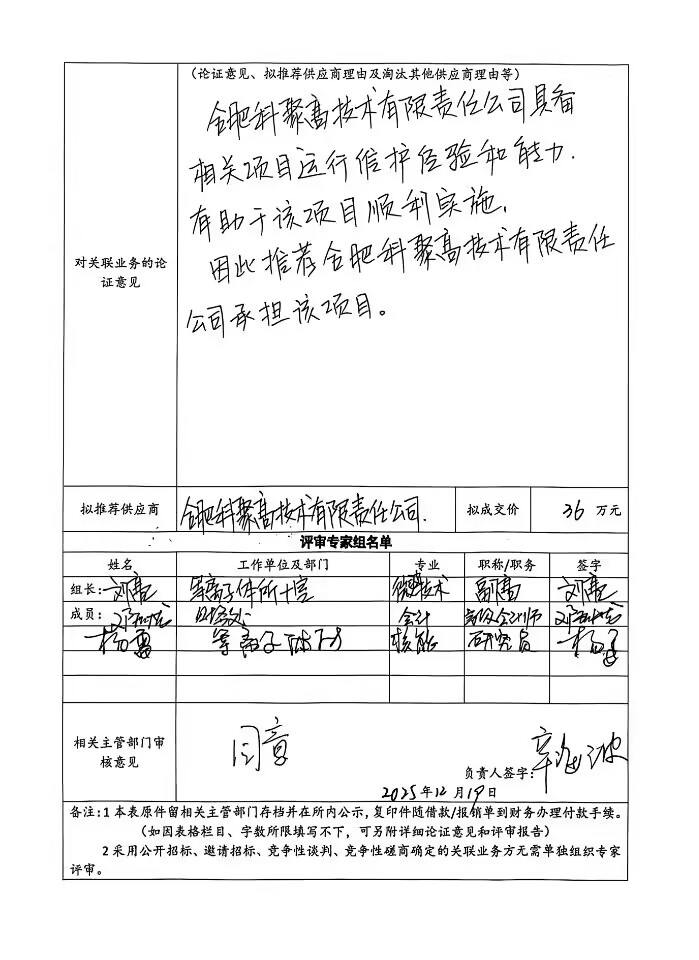 （论证意见、拟推荐供应商理由及淘汰其他供应商理由等）
合肥科聚高技术有限责任公司具备
相关项目运行维护经验和能力.
有助于该项目顺利实施.
因此推荐合肥科聚高技术有限责任
公司承担该项目。
对关联业务的论
证意见
拟推荐供应商 合肥科聚高技术有限责任公司. 拟成交价 36 万元
评审专家组名单
姓名 工作单位及部门 专业 职称/职务 签字
组长: 等离子体所十室 技术 副高
成员: 财务处 会计 高级会计师
杨 等离子体 核能 研究员 杨
相关主管部门审
核意见
同意
负责人签字:
2025年12月19日
备注:1 本表原件留相关主管部门存档并在所内公示,复印件随借款/报销单到财务办理付款手续。
（如因表格栏目、字数所限填写不下，可另附详细论证意见和评审报告）
2 采用公开招标、邀请招标、竞争性谈判、竞争性磋商确定的关联业务方无需单独组织专家
评审。